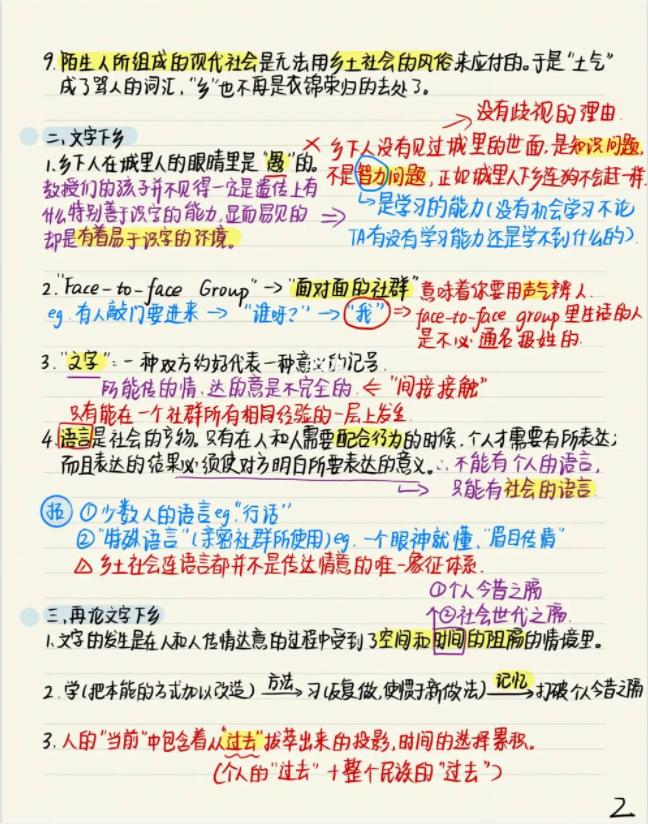 9. 陌生人所组成的现代社会是无法用乡土社会的风俗来应付的。于是“土气”
成了骂人的词汇，“乡”也不再是衣锦荣归的去处了。
没有歧视的理由.
二、文字下乡
1. 乡下人在城里人的眼睛里是“愚”的。
× 乡下人没有见过城里的世面，是知识问题，
不是智力问题，正如城里人下乡连狗不会赶一样.
教授们的孩子并不见得一定是遗传上有
什么特别善于识字的能力，显而易见的
却是有着易于识字的环境。
是学习的能力（没有机会学习不论
TA有没有学习能力还是学不到什么的）.
2. “Face-to-face Group” → “面对面的社群”
意味着你要用声气辨人.
eg. 有人敲门要进来 → “谁呀？” → “我” ⇒
face-to-face group里生活的人
是不必通名报姓的.
3. “文字”：一种双方约好代表一种意义的记号.
所能传的情、达的意是不完全的. ← “间接接触”
只有能在一个社群所有相同经验的一层上发生.
4. 语言是社会的产物。只有在人和人需要配合行为的时候，个人才需要有所表达；
而且表达的结果必须使对方明白所要表达的意义。∴不能有个人的语言，
只能有社会的语言.
拓 ①少数人的语言eg.“行话”
②“特殊语言”（亲密社群所使用）eg. 一个眼神就懂、“眉目传情”
△ 乡土社会连语言都并不是传达情意的唯一象征体系.
①个人今昔之隔
②社会世代之隔.
三、再论文字下乡
1. 文字的发生是在人和人传情达意的过程中受到了空间和时间的阻隔的情境里。
2. 学（把本能的方式加以改造） 方法→ 习（反复做，使惯于新做法） 记忆→ 打破个人今昔之隔
3. 人的“当前”中包含着从“过去”拔萃出来的投影，时间的选择累积。
（个人的“过去”+整个民族的“过去”）
2